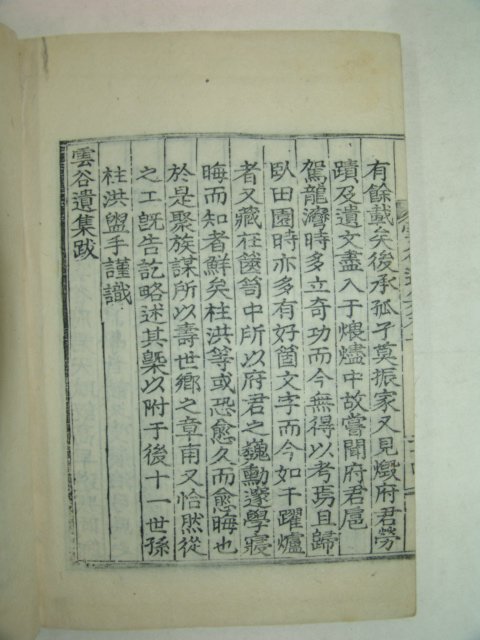 有餘載矣後承孤孑莫振家又見燬府君勞
蹟及遺文盡入于煨燼中故嘗聞府君扈
駕龍灣時多立奇功而今無得以考焉且歸
臥田園時亦多有好箇文字而今如干躍爐
者又藏在篋笥中所以府君之巍勳邃學寢
晦而知者鮮矣柱洪等或恐愈久而愈晦也
於是聚族謀所以壽世鄕之章甫又恰然從
之工旣告訖略述其槩以附于後十一世孫
柱洪盥手謹識
雲谷遺集跋